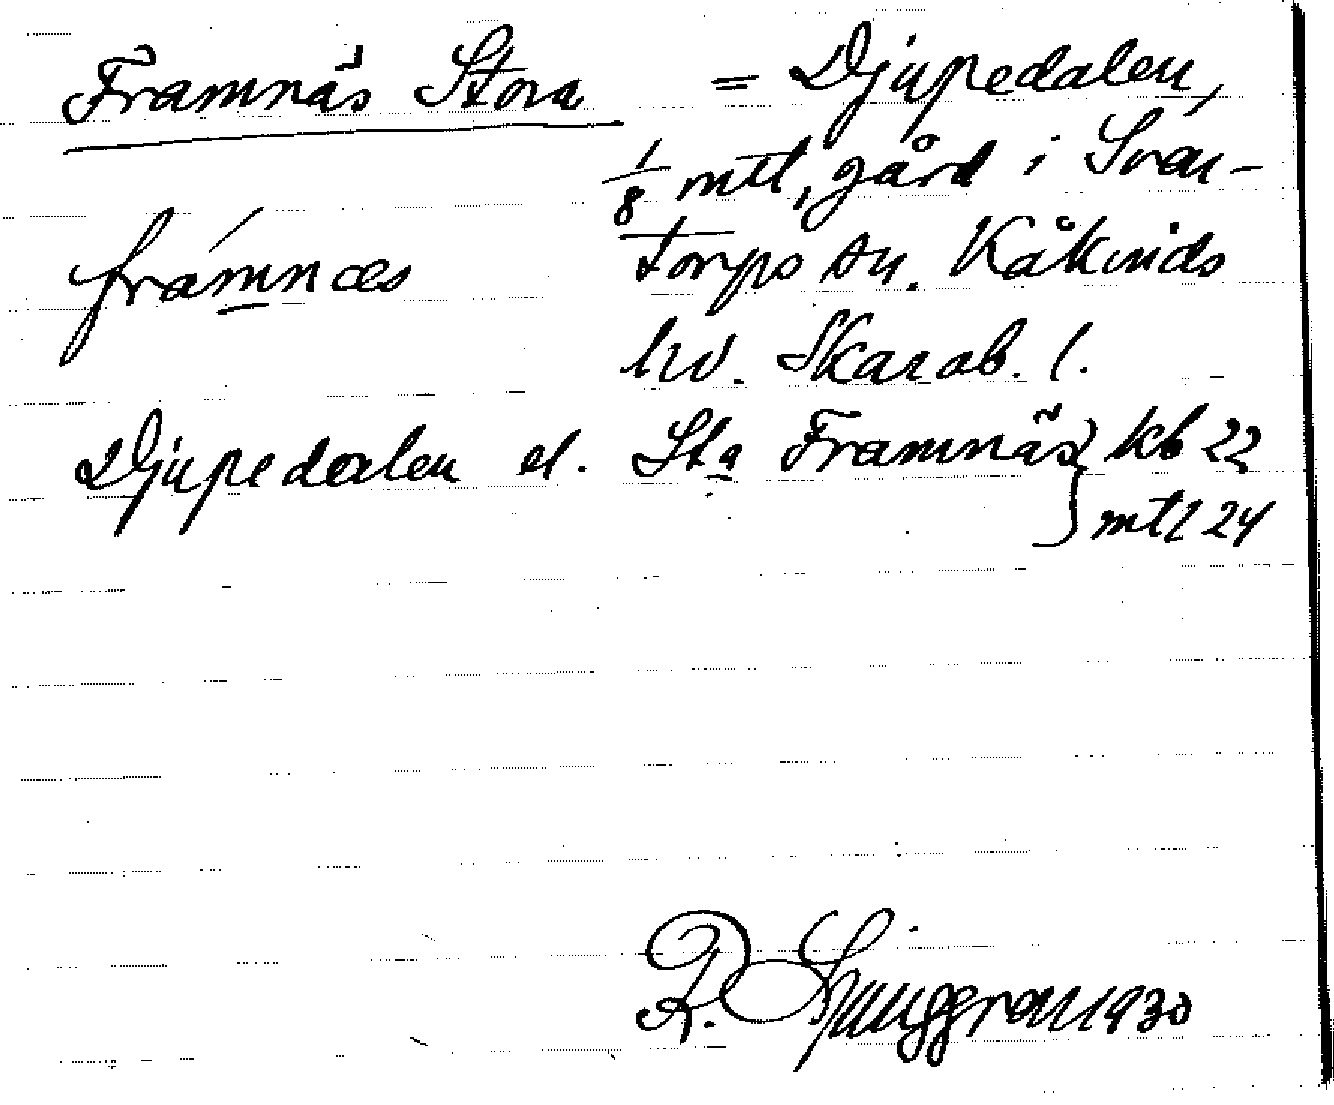 Framnäs Stora = Djupedalen,
1/8 mtl, gård i Svar-
torps sn. Kåkinds
frámnæs
hd. Skarab. l.
Djupedalen el. Sta Framnäs} kb 22
mtl 24
R. Ljunggren 1930